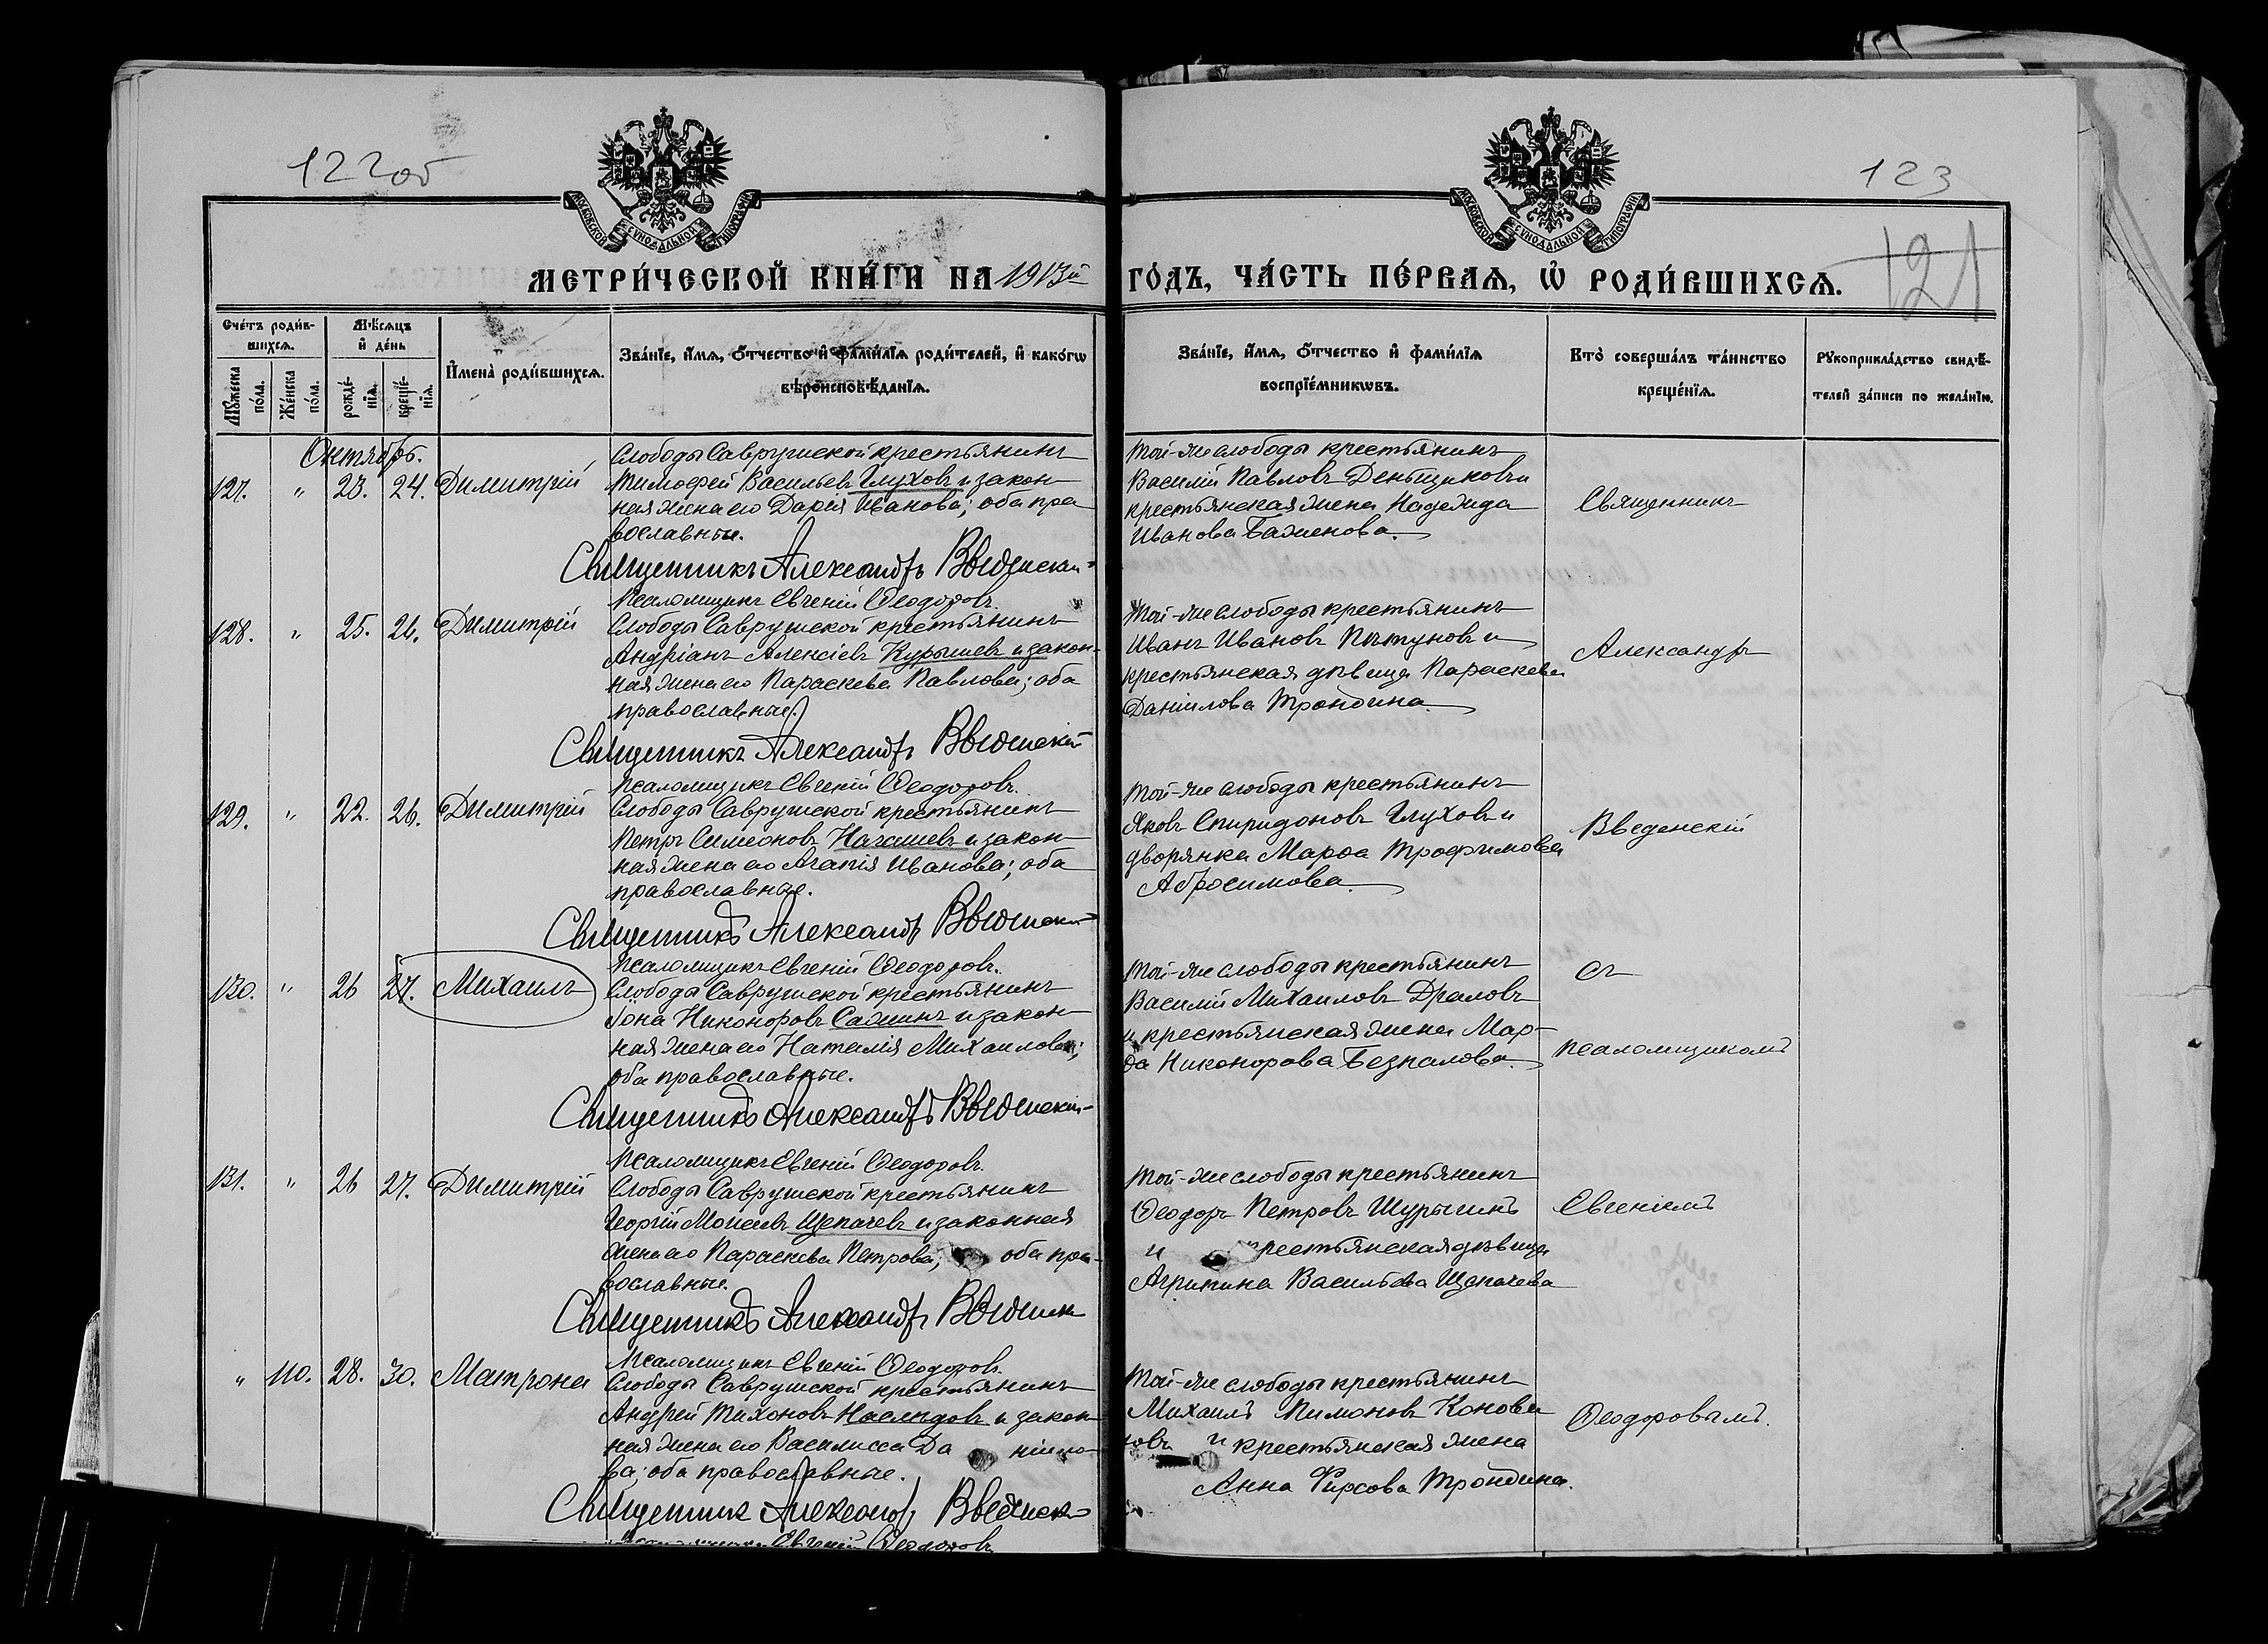 122об
123
121
МОСКОВСКОЙ СѴНОДАЛЬНОЙ ТИПОГРАФІИ
МОСКОВСКОЙ СѴНОДАЛЬНОЙ ТИПОГРАФІИ
МЕТРИ́ЧЕСКОЙ КНИ́ГИ НА 1913й ГО́ДЪ, ЧА́СТЬ ПЕ́РВАѦ, Ѡ҆ РОДИ́ВШИХСѦ.
Сче́тъ роди́в-
шихсѧ.
Мѣ́сѧцъ
и҆ де́нь
Мꙋ́жеска
по́ла.
Же́нска
по́ла.
рожде́-
нїѧ.
креще́-
нїѧ.
И҆мена̀ роди́вшихсѧ.
Зва́нїе, и҆́мѧ, ѻ҆́тчество и҆ фами́лїѧ роди́телей, и҆ како́гѡ
вѣроисповѣ́данїѧ.
Зва́нїе, и҆́мѧ, ѻ҆́тчество и҆ фами́лїѧ
воспрїе́мникѡвъ.
Кто̀ соверша́лъ та́инство
креще́нїѧ.
Рꙋкоприкла́дство свидѣ́-
телей за́писи по жела́нїю.
Октябрь.
127. " 23. 24. Димитрій
Слободы Саврушской крестьянинъ
Тимофей Васильевъ Глуховъ и закон-
ная жена его Дарія Иванова; оба пра
вославные.
Священникъ Александръ Введенскій
Псаломщикъ Евгеній Ѳеодоровъ.
Той-же слободы крестьянинъ
Василій Павловъ Деньщиковъ и
крестьянская жена Надежда
Иванова Баженова.
128. " 25. 26. Димитрій
Слободы Саврушской крестьянинъ
Андріанъ Алексіевъ Курышевъ и закон-
ная жена его Параскева Павлова; оба
православные.
Священникъ Александръ Введенскій
Псаломщикъ Евгеній Ѳеодоровъ.
Той-же слободы крестьянинъ
Иванъ Ивановъ Пятуновъ и
крестьянская дѣвица Параскева
Даніилова Трондина.
129. " 22. 26. Димитрій
Слободы Саврушской крестьянинъ
Петръ Симеоновъ Качашевъ и закон-
ная жена его Агапія Иванова; оба
православные.
Священникъ Александръ Введенскій
Псаломщикъ Евгеній Ѳеодоровъ.
Той-же слободы крестьянинъ
Яковъ Спиридоновъ Глуховъ и
дворянка Марѳа Трофимова
Абросимова.
130. " 26 27. Михаилъ
Слободы Саврушской крестьянинъ
Іона Никоноровъ Сажинъ и закон-
ная жена его Наталія Михаилова;
оба православные.
Священникъ Александръ Введенскій
Псаломщикъ Евгеній Ѳеодоровъ.
Той-же слободы крестьянинъ
Василій Михаиловъ Драловъ
и крестьянская жена Мар-
ѳа Никонорова Безпалова.
131. " 26 27. Димитрій
Слободы Саврушской крестьянинъ
Георгій Моисеевъ Щепачевъ и законная
жена его Параскева Петрова; оба пра-
вославные.
Священникъ Александръ Введенск
Псаломщикъ Евгеній Ѳеодоровъ.
Той-же слободы крестьянинъ
Ѳеодоръ Петровъ Шурыгинъ
и крестьянская дѣвица
Агрипина Васильева Щепачева
" 110. 28. 30. Матрона
Слободы Саврушской крестьянинъ
Андрей Тихоновъ Наслѣдовъ и закон-
ная жена его Василисса Да ніило-
ва; оба православные.
Священникъ Александръ Введенск
Псаломщикъ Евгеній Ѳеодоровъ
Той-же слободы крестьянинъ
Михаилъ Пимоновъ Конова
ловъ и крестьянская жена
Анна Фирсова Трондина.
Священникъ
Александръ
Введенскій
съ
псаломщикомъ
Евгеніемъ
Ѳеодоровымъ.